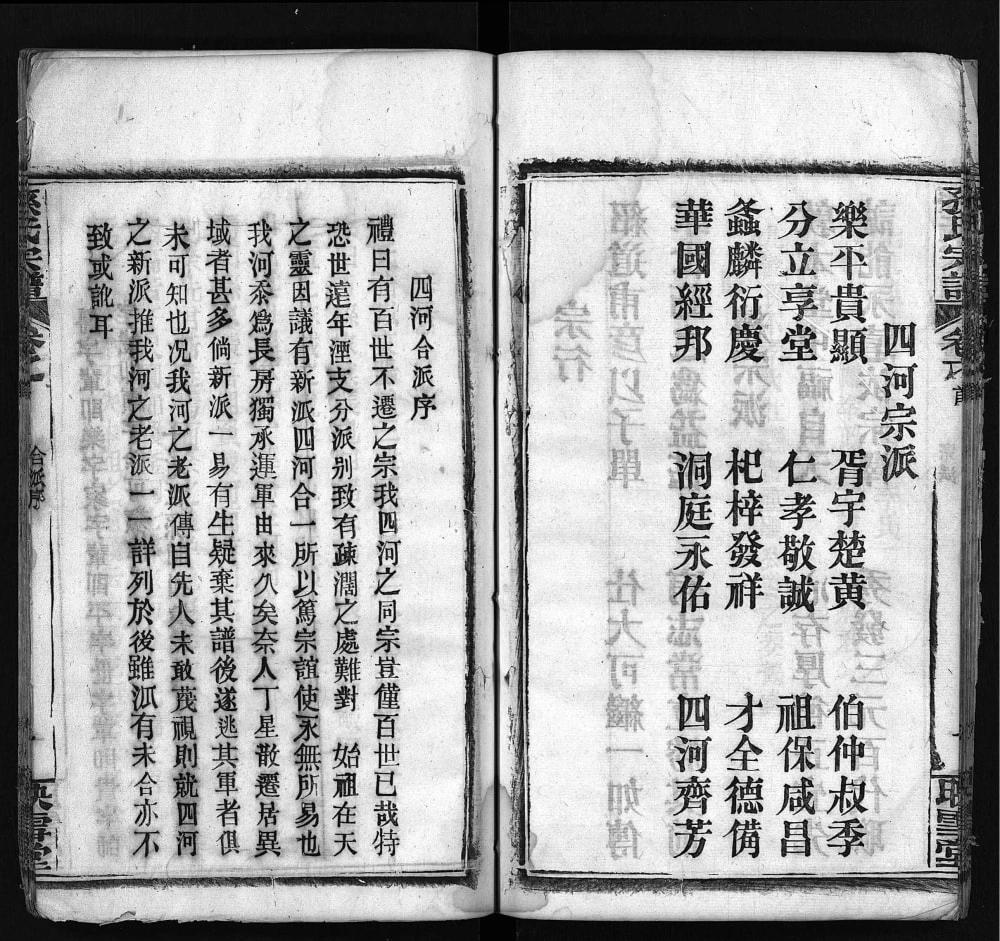 四河宗派
樂平貴顯 胥宇楚黄 伯仲叔季
分立享堂 仁孝敬誠 祖保咸昌
螽麟衍慶 杞梓發祥 才全德備
華國經邦 洞庭永佑 四河齊芳
四河合派序
禮曰有百世不遷之宗我四河之同宗豈僅百世已哉特
恐世遠年湮支分派别致有疎濶之處難對 始祖在天
之靈因議有新派四河合一所以篤宗誼使永無所易也
我河忝爲長房獨承運軍由來久矣奈人丁星散遷居異
域者甚多倘新派一易有生疑棄其譜後遂逃其軍者俱
未可知也况我河之老派傳自先人未敢蔑視則就四河
之新派推我河之老派一一詳列於後雖派有未合亦不
致或訛耳
合派序